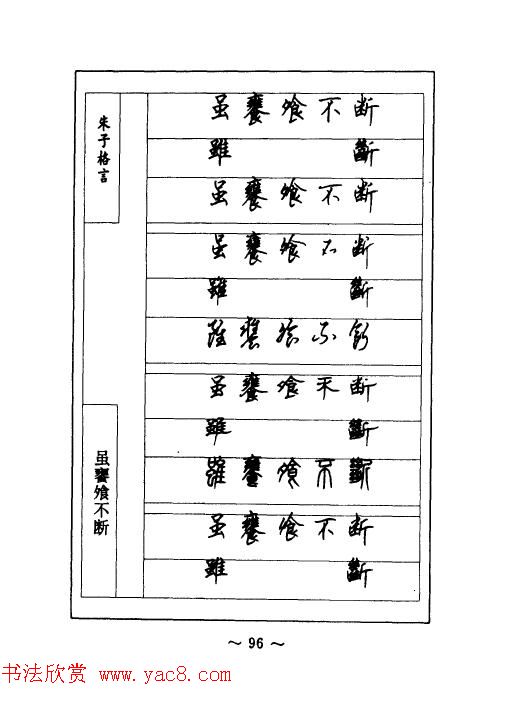 朱子格言
虽饔飧不断
虽饔飧不断
雖 斷
虽饔飧不断
虽饔飧不断
雖 斷
雖饔飧不斷
虽饔飧不断
雖 斷
雖饔飧不斷
虽饔飧不断
雖 斷
～ 96 ～
书法欣赏 www.yac8.com